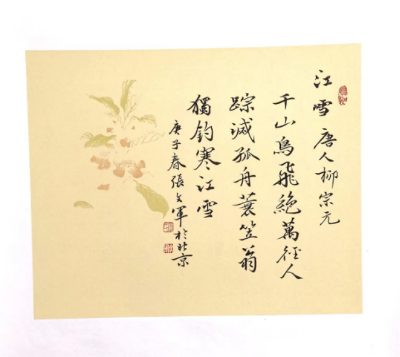 江雪 唐人柳宗元
千山鳥飛絶萬径人
踪滅孤舟蓑笠翁
獨釣寒江雪
庚子春張文軍於北京